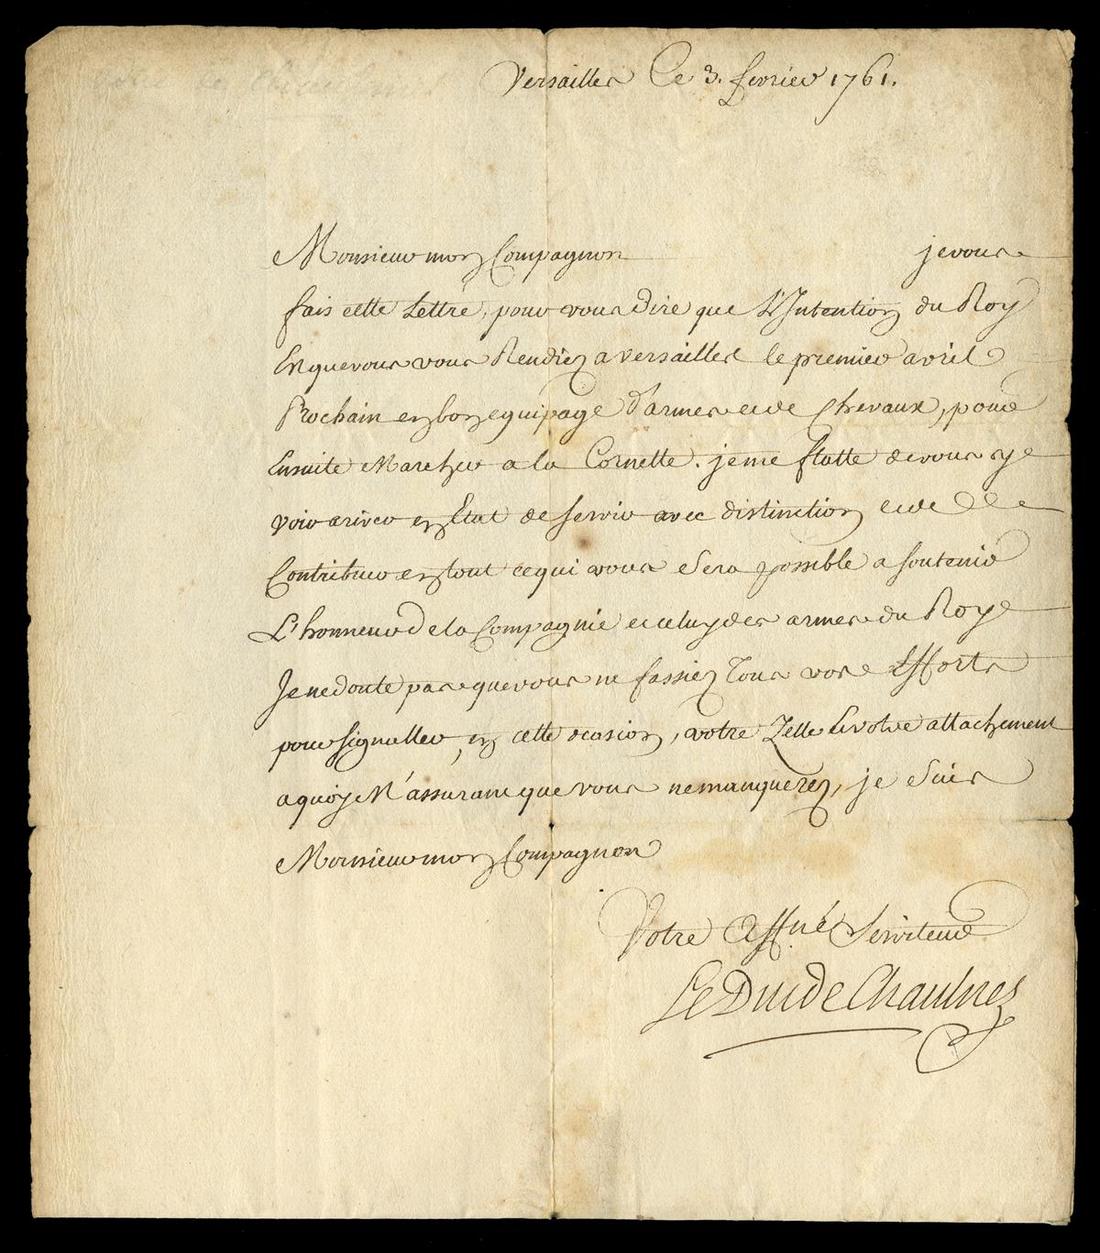 Versailles Ce 3. fevrier 1761.
Monsieur mon Compagnon je vous
fais cette Lettre, pour vous dire que L'Intention du Roy
Est que vous vous Rendiez a Versailles le premier avril
Prochain en bon equipage d'armes et de Chevaux, pour
Ensuite Marcher a la Cornette. je me flatte de vous y
voir ariver en Etat de servir avec distinction et de
Contribuer en tout ce qui vous Sera possible a soutenir
L'honneur de la Compagnie et celuy des armes du Roy
Je ne doute pas que vous ne fassiez Tous vos Efforts
pour signaller, en cette ocasion, votre Zelle et votre attachement
a quoy M'assurant que vous ne manquerez, je Suis
Monsieur mon Compagnon
Votre Affné Serviteur
Le Duc de Chaulnes